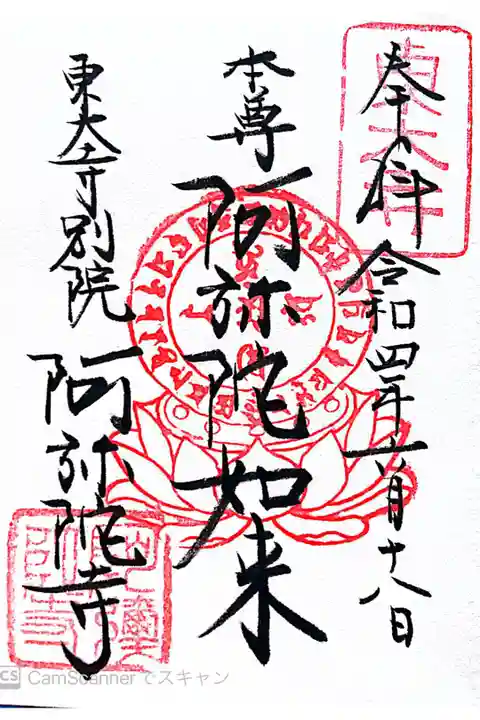 奉拝 令和四年六月十八日
本尊 阿弥陀如来
東大寺別院 阿弥陀寺
CS CamScannerでスキャン